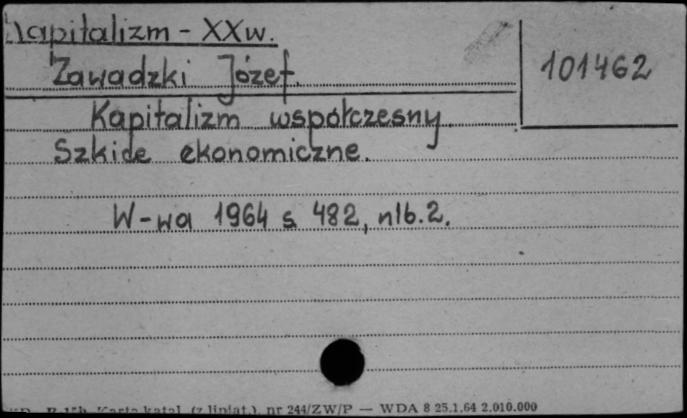 Kapitalizm - XXw.
Zawadzki Józef.
101462
Kapitalizm współczesny.
Szkice ekonomiczne.
W-wa 1964 s 482, nlb.2.
Karta katal. (z liniat.), nr 244/ZW/P — WDA 8 25.1.64 2.010.000